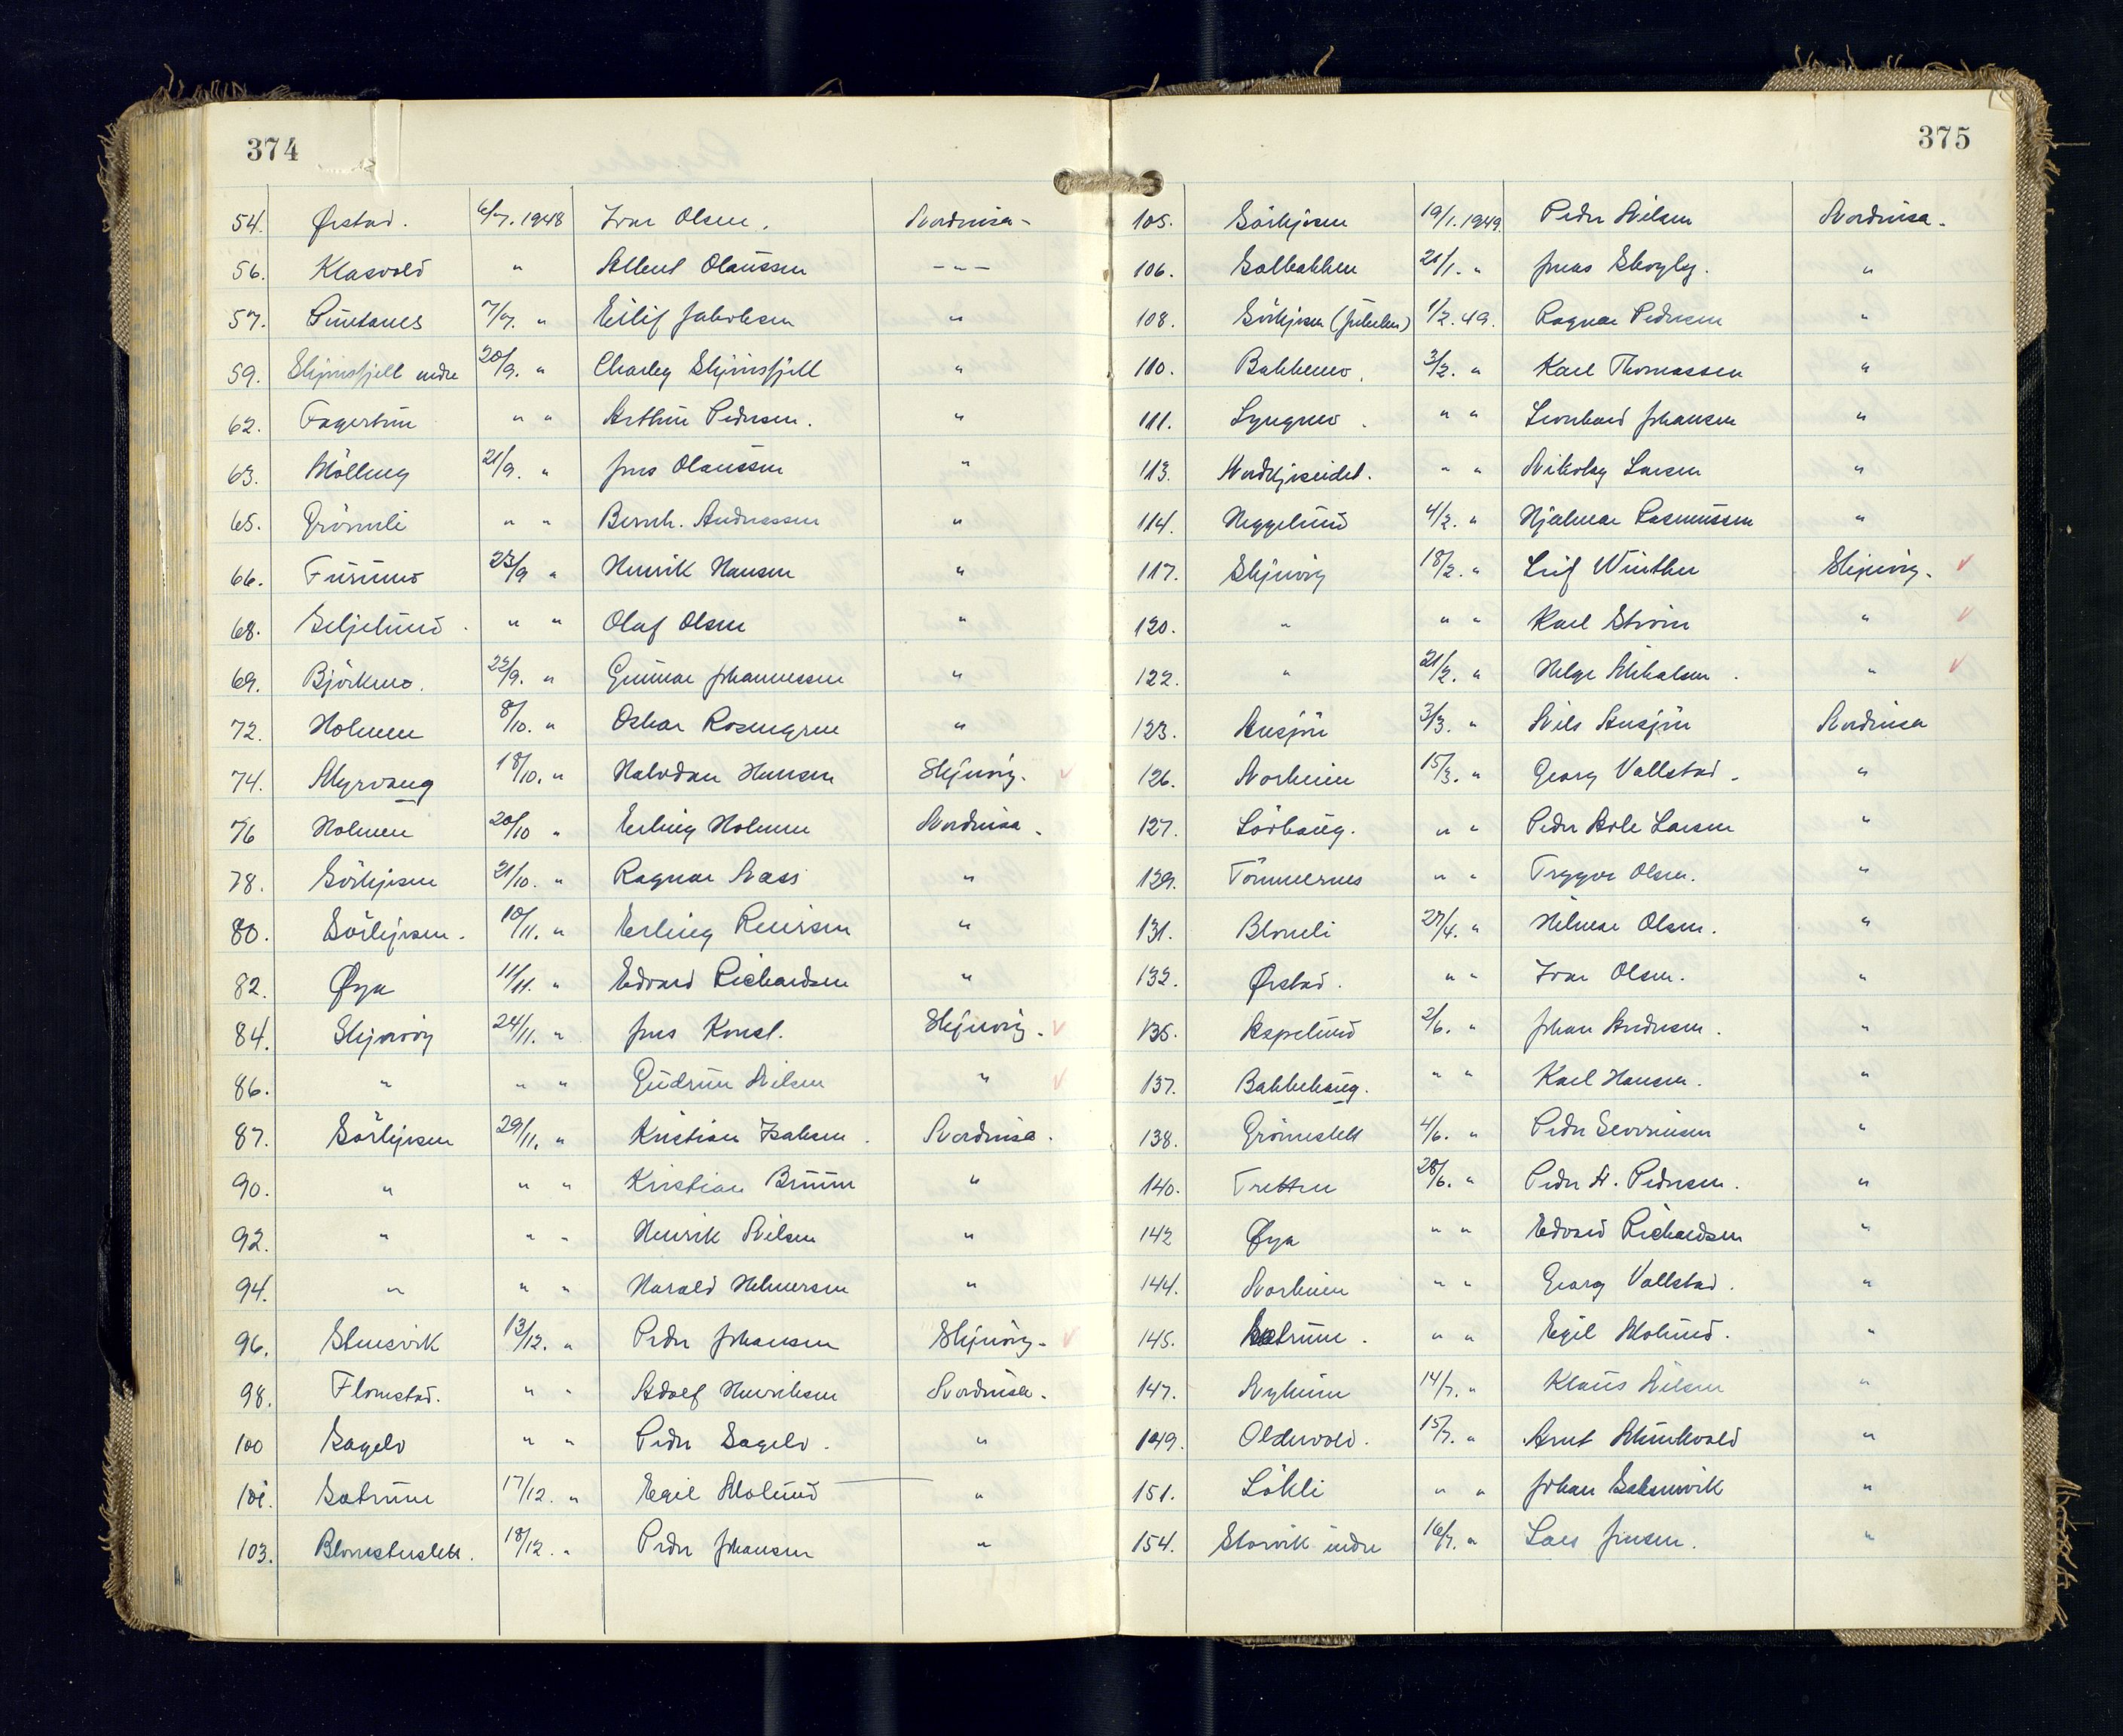 374
54. Ørstad. 6/7. 1948 Ivar Olsen. Nordreisa -
56. Klasvold " Albert Olaussen - " -
57. Puntanes 7/9. " Eilif Jakobsen "
59. Skjinsfjell indre 20/9. " Charley Skjinsfjell "
62. Fagertun " " Arthur Pedersen. "
63. Mölleng 21/9. " Jens Olaussen "
65. Grönnli " " Bernh. Andreassen "
66. Furumo 22/9 " Henrik Hansen "
68. Seljelund " " Olaf Olsen "
69. Björkmo. 22/9. " Gunnar Johannessen "
72. Holmen 8/10. " Oskar Rosengren "
74. Myrvang 18/10. " Halvdan Hansen Skjervöy.
76 Holmen 20/10 " Erling Holmen Nordreisa.
78. Sörkjosen 21/10. " Ragnar Næss "
80. Sörkjosen. 10/11. " Erling Reiersen "
82. Øya 11/11. " Edvard Richardsen "
84. Skjervöy 24/11. " Jens Konst. Skjervöy.
86. " " " Gudrun Nilsen "
87. Sörkjosen 29/11. " Kristian Isaksen. Nordreisa.
90. " " " Kristian Bruun "
92. " " " Henrik Nilsen "
94. " " " Harald Helmersen "
96. Stensvik 13/12. " Peder Johansen Skjervöy.
98. Flomstad. " " Adolf Henriksen Nordreisa.
100 Sagelv " " Peder Sagelv. "
101. Sætrum 17/12. " Egil Molund "
103. Blomsterslett. 18/12. " Peder Johansen "
375
105. Sörkjosen 19/1. 1949. Peder Nilsen Nordreisa.
106. Solbakken 21/1. " Jonas Skogly. "
108. Sörkjosen 1/2. 49. Ragnar Pedersen "
110. Bakkemo. 3/2. " Karl Thomassen "
111. Lyngmo. " " Leonhard Johansen "
113. Nordkjoseidet. " " Nikolay Larsen "
114. Heggelund 4/2. " Hjalmar Rasmussen "
117. Skjervöy 18/2. " Leif Winther Skjervöy.
120. " " " Karl Ström "
122. " 21/2. " Helge Mikalsen. "
123. Ansjön 3/3. " Nils Ansjön Nordreisa
126. Norheim 15/3. " Georg Vallstad. "
127. Lörhaug. " " Peder Arle Larsen "
129. Tömmernes " " Trygve Olsen. "
131. Blomli 27/4. " Hilmar Olsen. "
132. Ørstad. " " Ivar Olsen. "
135. Aspelund 2/6. " Johan Andersen. "
137. Bakkehaug. " " Karl Hansen. "
138. Grönnslett 4/6. " Peder Severinsen "
140. Tretten 28/6. " Peder A. Pedersen. "
142 Øya " " Edvard Richardsen "
144. Norheim " " Georg Vallstad. "
145. Sætrum. " " Egil Molund. "
147. Nyheim 14/7. " Klaus Nilsen "
149. Oldervold. 15/7. " Arnt Munkvold "
151. Lökli " " Johan Saksenvik "
154. Storvik indre 16/7. " Lars Jensen. "